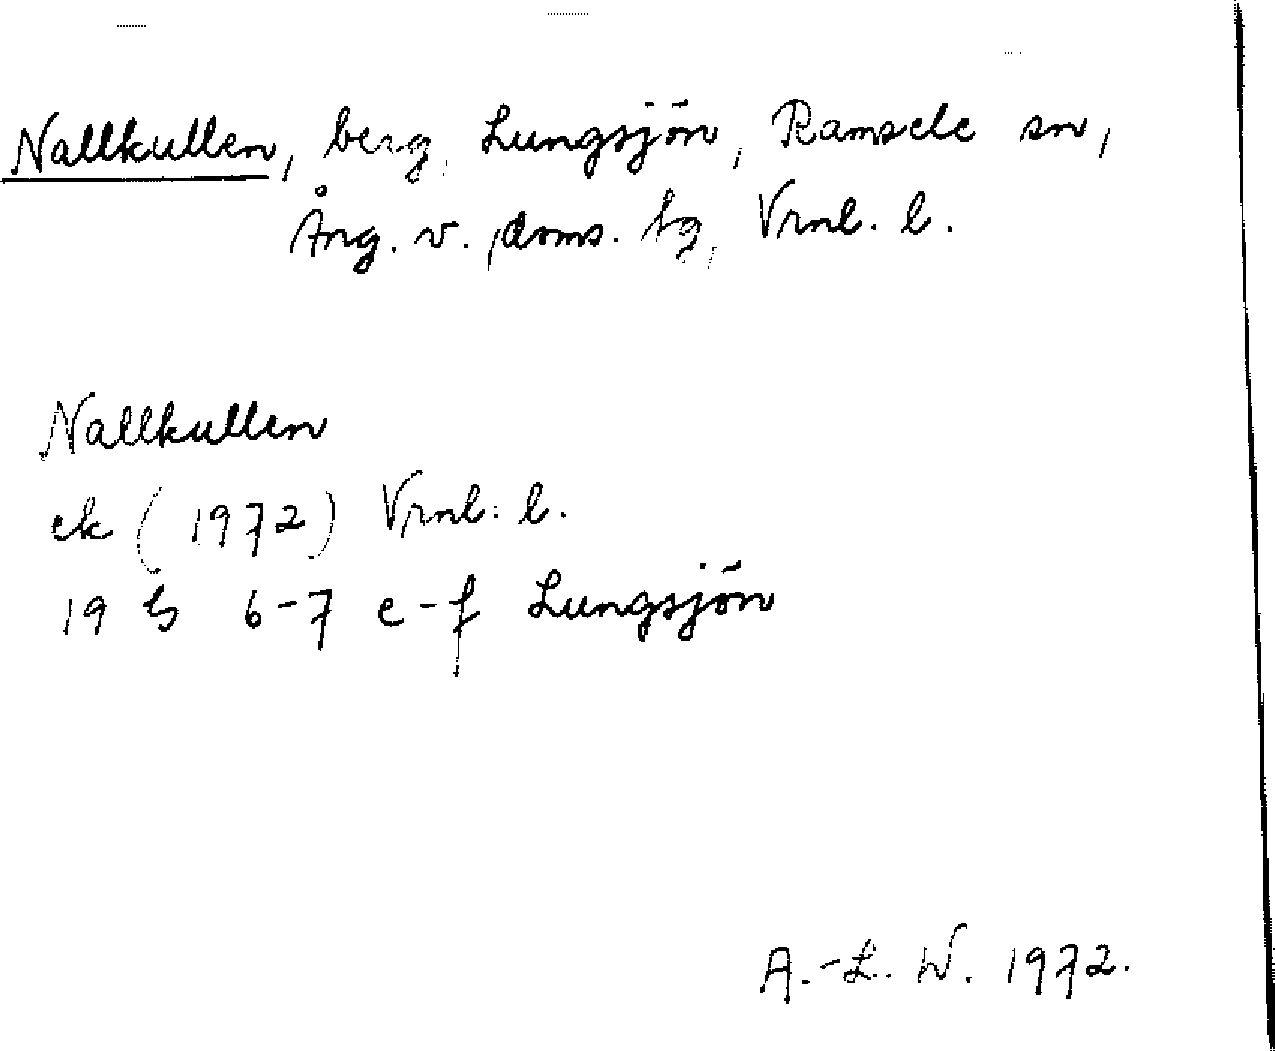 Nallkullen, berg, Lungsjön, Ramsele sn,
Ång. v. doms. tg, Vrnl. l.
Nallkullen
ek (1972) Vrnl. l.
19 G 6-7 e-f Lungsjön
A.-L. W. 1972.